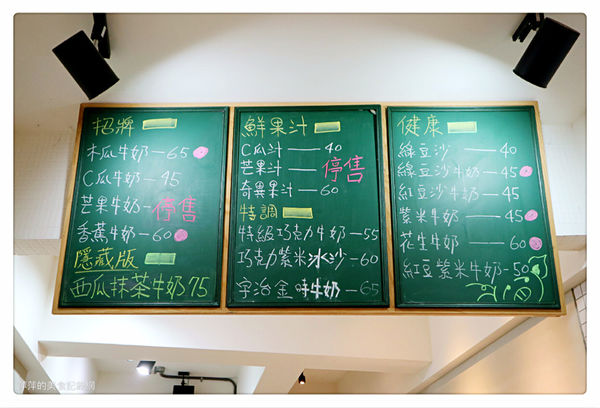 招牌
木瓜牛奶—65
C瓜牛奶—45
芒果牛奶—停售
香蕉牛奶—60
隱藏版
西瓜抹茶牛奶75
鮮果汁
C瓜汁——40
芒果汁——停售
奇異果汁——60
特調
特級巧克力牛奶—55
巧克力紫米冰沙—60
宇治金時牛奶—65
健康
綠豆沙——40
綠豆沙牛奶—45
紅豆沙牛奶—45
紫米牛奶——45
花生牛奶——60
紅豆紫米牛奶-50
萍萍的美食記載網